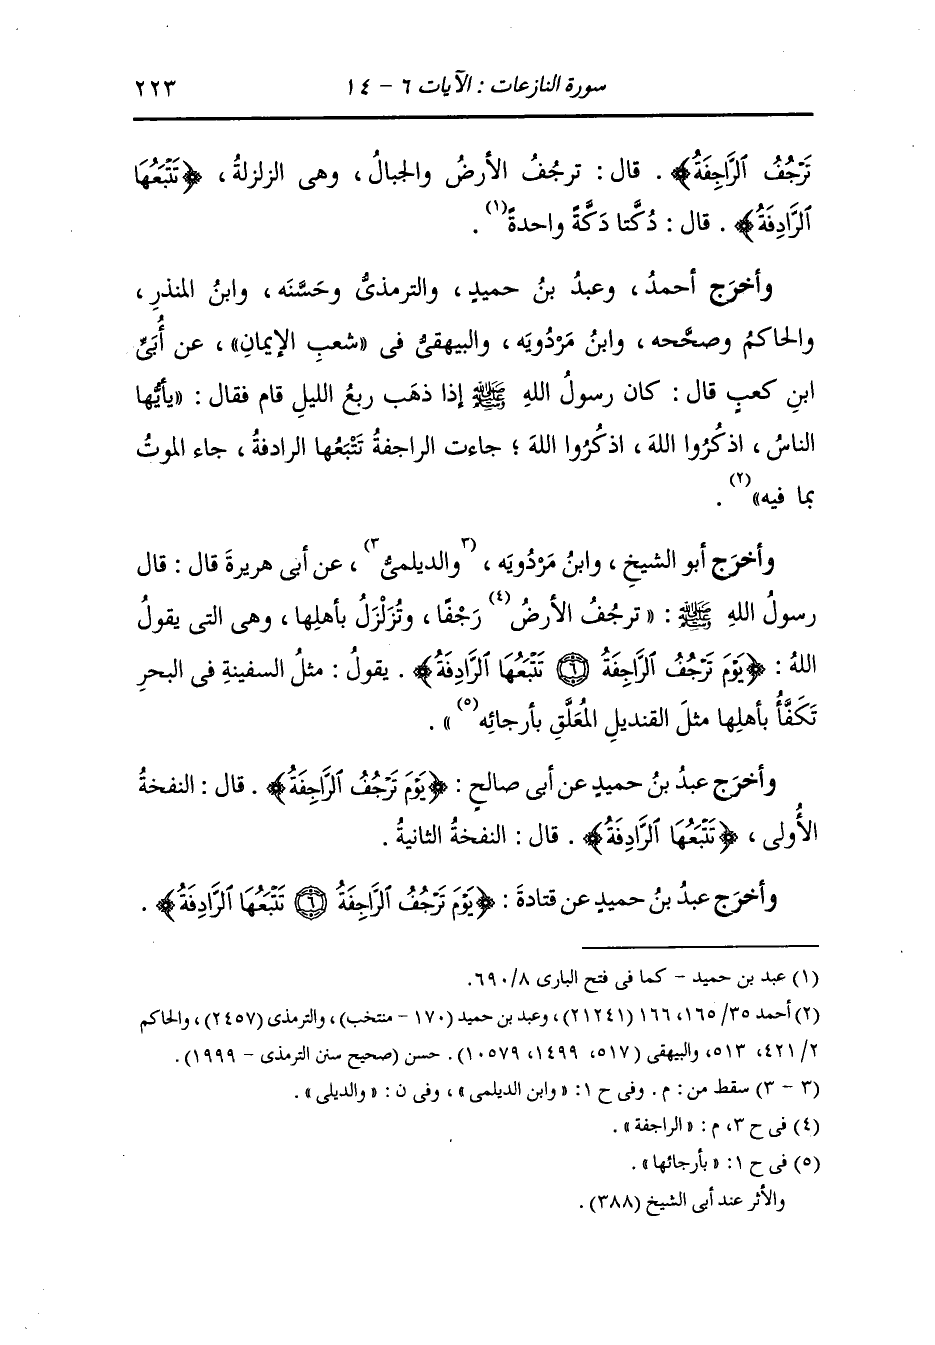 سورة النازعات : الآيات ٦ - ١٤ ٢٢٣
تَرْجُفُ ٱلرَّاجِفَةُ﴾ . قال : ترجُفُ الأرضُ والجبالُ ، وهى الزلزلةُ ، ﴿تَتْبَعُهَا
ٱلرَّادِفَةُ﴾ . قال : دُكَّتا دَكَّةً واحدةً(١) .
وأخرَج أحمدُ ، وعبدُ بنُ حميدٍ ، والترمذىُّ وحَسَّنَه ، وابنُ المنذرِ ،
والحاكمُ وصحَّحه ، وابنُ مَرْدُويَه ، والبيهقىُّ فى «شعبِ الإيمانِ» ، عن أُبَىِّ
ابنِ كعبٍ قال : كان رسولُ اللهِ ﷺ إذا ذهَب ربعُ الليلِ قام فقال : «يأيُّها
الناسُ ، اذكُرُوا اللهَ ، اذكُرُوا اللهَ ؛ جاءت الراجفةُ تَتْبَعُها الرادفةُ ، جاء الموتُ
بما فيه»(٢) .
وأخرَج أبو الشيخِ ، وابنُ مَرْدُويَه ، (٣والديلمىُّ٣) ، عن أبى هريرةَ قال : قال
رسولُ اللهِ ﷺ : «ترجُفُ الأرضُ(٤) رَجْفًا ، وتُزَلْزَلُ بأهلِها ، وهى التى يقولُ
اللهُ : ﴿يَوْمَ تَرْجُفُ ٱلرَّاجِفَةُ ۝٦ تَتْبَعُهَا ٱلرَّادِفَةُ﴾ . يقولُ : مثلُ السفينةِ فى البحرِ
تَكَفَّأُ بأهلِها مثلَ القنديلِ المُعَلَّقِ بأرجائِه(٥)» .
وأخرَج عبدُ بنُ حميدٍ عن أبى صالحٍ : ﴿يَوْمَ تَرْجُفُ ٱلرَّاجِفَةُ﴾ . قال : النفخةُ
الأُولى ، ﴿تَتْبَعُهَا ٱلرَّادِفَةُ﴾ . قال : النفخةُ الثانيةُ .
وأخرَج عبدُ بنُ حميدٍ عن قتادةَ : ﴿يَوْمَ تَرْجُفُ ٱلرَّاجِفَةُ ۝٦ تَتْبَعُهَا ٱلرَّادِفَةُ﴾ .
(١) عبد بن حميد - كما فى فتح البارى ٦٩٠/٨.
(٢) أحمد ٣٥/ ١٦٥، ١٦٦ (٢١٢٤١) ، وعبد بن حميد (١٧٠ - منتخب) ، والترمذى (٢٤٥٧) ، والحاكم
٢/ ٤٢١، ٥١٣، والبيهقى (٥١٧، ١٤٩٩، ١٠٥٧٩) . حسن (صحيح سنن الترمذى - ١٩٩٩) .
(٣ - ٣) سقط من : م . وفى ح ١: «وابن الديلمى» ، وفى ن : «والديلى» .
(٤) فى ح ٣، م : «الراجفة» .
(٥) فى ح ١: «بأرجائها» .
والأثر عند أبى الشيخ (٣٨٨) .